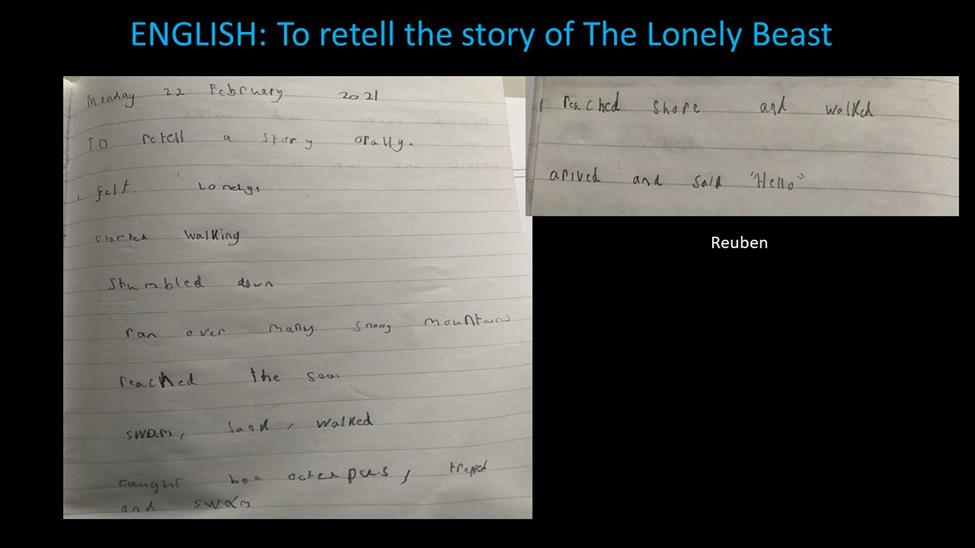 ENGLISH: To retell the story of The Lonely Beast
Monday 22 February 2021
To retell a story orally.
felt lonely,
started walking
Stumbled down
ran over many snowy mountains
reached the sea
swam, sand, walked
caught by octerpus, trapped
and swam
reached shore and walked
arived and said "Hello"
Reuben